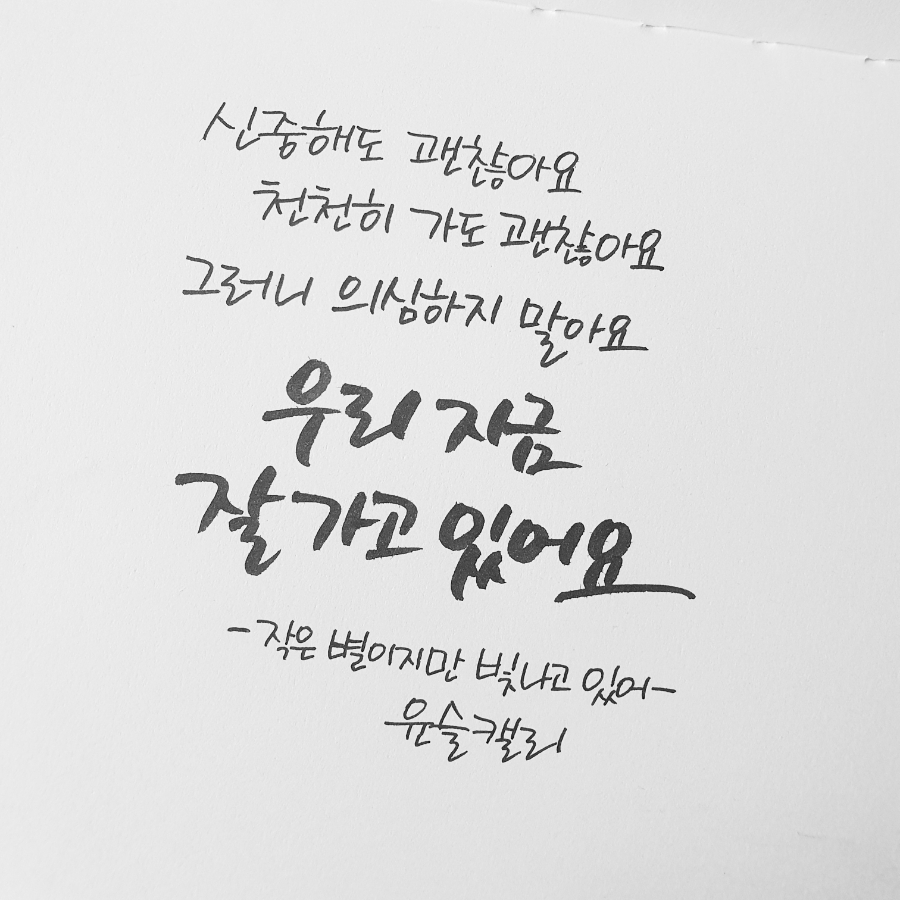 신중해도 괜찮아요
천천히 가도 괜찮아요
그러니 의심하지 말아요
우리 지금
잘 가고 있어요
-작은 별이지만 빛나고 있어-
윤슬캘리